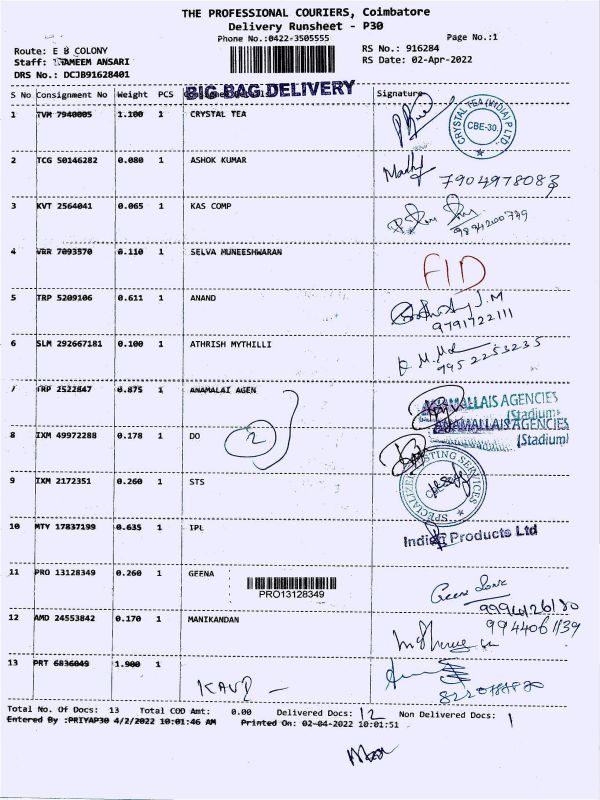 THE PROFESSIONAL COURIERS, Coimbatore
Delivery Runsheet - P30
Phone No.:0422-3505555
Page No.:1
Route: E B COLONY
RS No.: 916284
Staff: TAMEEM ANSARI
RS Date: 02-Apr-2022
DRS No.: DCJB91628401
BIG BAG DELIVERY
S No Consignment No Weight PCS Signature
1 TVM 7940005 1.100 1 CRYSTAL TEA
CRYSTAL TEA (INDIA) P LTD. CBE-30.
2 TCG 50146282 0.080 1 ASHOK KUMAR
7904978083
3 KVT 2564041 0.065 1 KAS COMP
4 VRR 7093570 0.110 1 SELVA MUNEESHWARAN
FID
5 TRP 5209106 0.611 1 ANAND
9791722111
6 SLM 292667181 0.100 1 ATHRISH MYTHILLI
7952253235
7 TRP 2522847 0.875 1 ANAMALAI AGEN
ANAMALLAIS AGENCIES
(Stadium)
8 IXM 49972288 0.178 1 DO 2
ANAMALLAIS AGENCIES
(Stadium)
9 IXM 2172351 0.260 1 STS
SPECIALIZED TESTING SERVICES
10 MTY 17837199 0.635 1 IPL
Products Ltd
11 PRO 13128349 0.260 1 GEENA
PRO13128349
12 AMD 24553842 0.170 1 MANIKANDAN
9944061139
13 PRT 6836049 1.900 1
Total No. Of Docs: 13 Total COD Amt: 0.00 Delivered Docs: 12 Non Delivered Docs: 1
Entered By :PRIYAP30 4/2/2022 10:01:46 AM Printed On: 02-04-2022 10:01:51